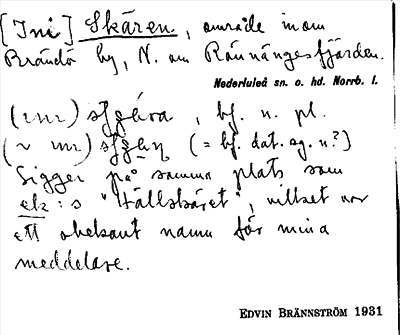 [Ini] Skären, område inom
Brändö by, N. om Rånängesfjärden.
Nederluleå sn. o. hd. Norrb. l.
(ınr) , bf. n. pl.
(~ ınr) (= bf. dat. sg. n.?)
Ligger på samma plats som
ek:s "Hällskäret", vilket var
ett obekant namn för mina
meddelare.
EDVIN BRÄNNSTRÖM 1931